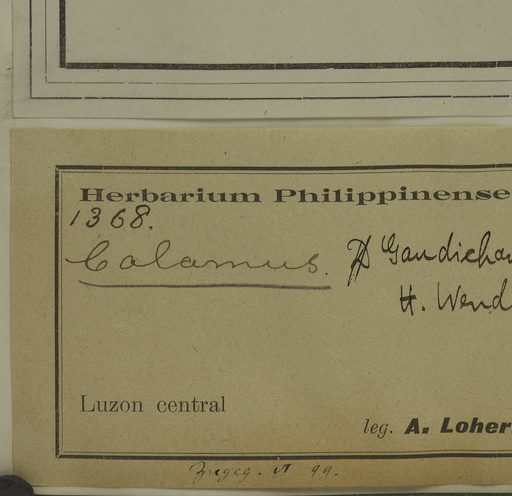 Herbarium Philippinense
1368.
Calamus. Gaudichau
H. Wend
Luzon central
leg. A. Loher
99.